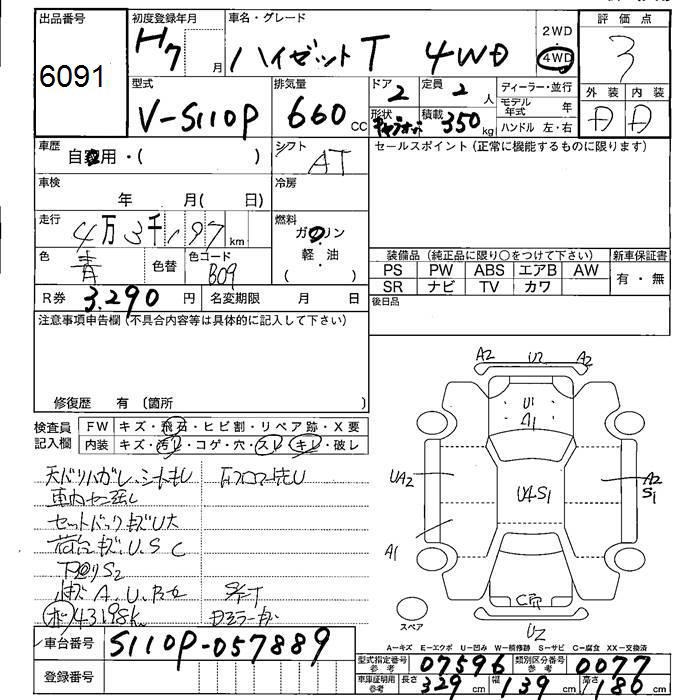 出品番号 初度登録年月 車名・グレード 2WD 評価点
6091 H7 月 ハイゼット T 4WD 4WD 3
型式 排気量 ドア 2 定員 2 人 ディーラー・並行 外装 内装
V-S110P 660 CC 形状 積載 350 kg モデル年式 年 D D
ハンドル 左・右
車歴 自家用・( ) シフト AT セールスポイント (正常に機能するものに限ります)
車検 年 月( 日) 冷房
走行 4万3千197 km 燃料 ガソリン
軽・油
( )
色 青 色替 色コード B09
装備品 (純正品に限り○をつけて下さい) 新車保証書
PS PW ABS エアB AW 有・無
SR ナビ TV カワ
R券 3.290 円 名変期限 月 日 後日品
注意事項申告欄 (不具合内容等は具体的に記入して下さい)
修復歴 有 (箇所 )
検査員記入欄 FW キズ・飛石・ヒビ割・リペア跡・X要
内装 キズ・汚れ・コゲ・穴・スレ・キレ・破レ
A2 U2 A2
U1
A1
UA2 U4S1 A2
S1
A1
スペア
U2
天ドリハガレ、シートキレ
セットバックキズU大
荷台キズ、U、S、C
43198k
A-キズ E-エクボ U-凹み W-補修跡 S-サビ C-腐食 XX-交換済
車台番号 S110P-057889
型式指定番号 参考 07596 類別区分番号 参考 0077
登録番号 車庫証明用 参考 長さ 329 cm 幅 139 cm 高さ 186 cm